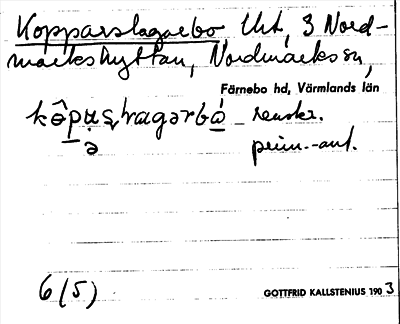 Kopparslagarebo Utr, 3 Nord-
markshyttan, Nordmarks sn,
Färnebo hd, Värmlands län
renskr.
prim.-ant.
6 (5)
GOTTFRID KALLSTENIUS 1903